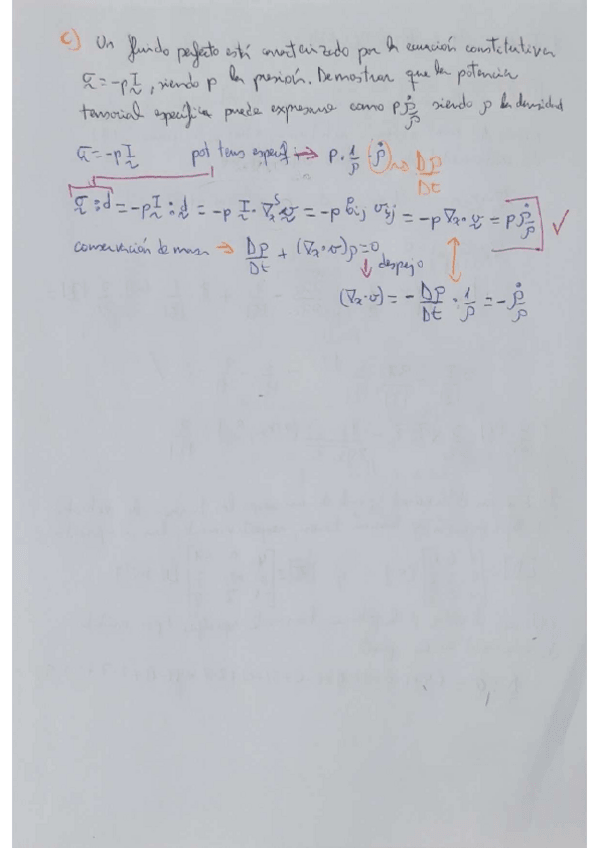 c) Un fluido perfecto está caracterizado por la ecuación constitutiva
σ = -p I, siendo p la presión. Demostrar que la potencia
tensorial específica puede expresarse como p ρ̇/ρ siendo ρ la densidad
σ = -p I pot tens específ → p · 1/ρ · ρ̇ → Dρ/Dt
σ : d = -p I : d = -p I · ∇ₓˢ v = -p δij vij = -p ∇ₓ · v = p ρ̇/ρ ✓
conservación de masa → Dρ/Dt + (∇ₓ · v) ρ = 0
↓ despejo
(∇ₓ · v) = - Dρ/Dt · 1/ρ = - ρ̇/ρ